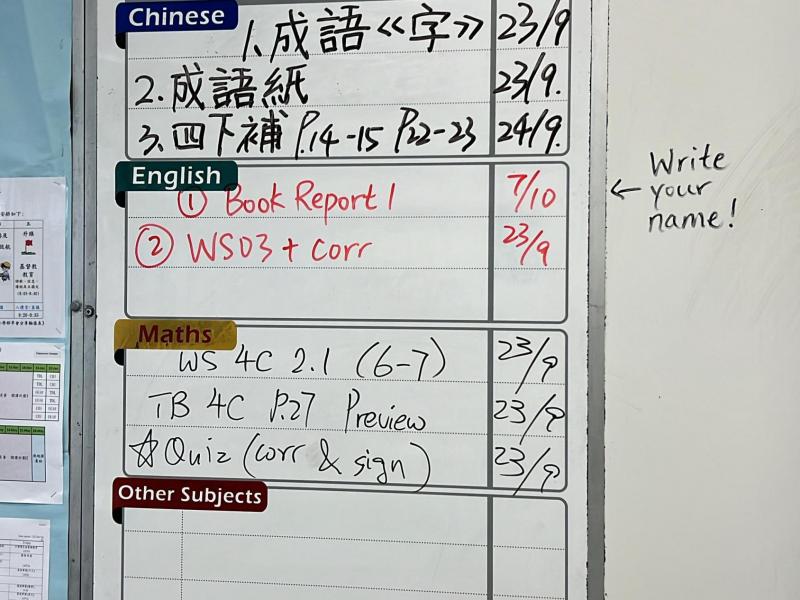 Chinese
1. 成語《字》 23/9
2. 成語紙 23/9.
3. 四下補 P.14-15 P.22-23 24/9.
English
① Book Report 1 7/10
② WS03 + corr 23/9
Maths
WS 4C 2.1 (6-7) 23/9
TB 4C P.27 Preview 23/9
☆Quiz (corr & sign) 23/9
Other Subjects
← Write
your
name!
基督教
教育